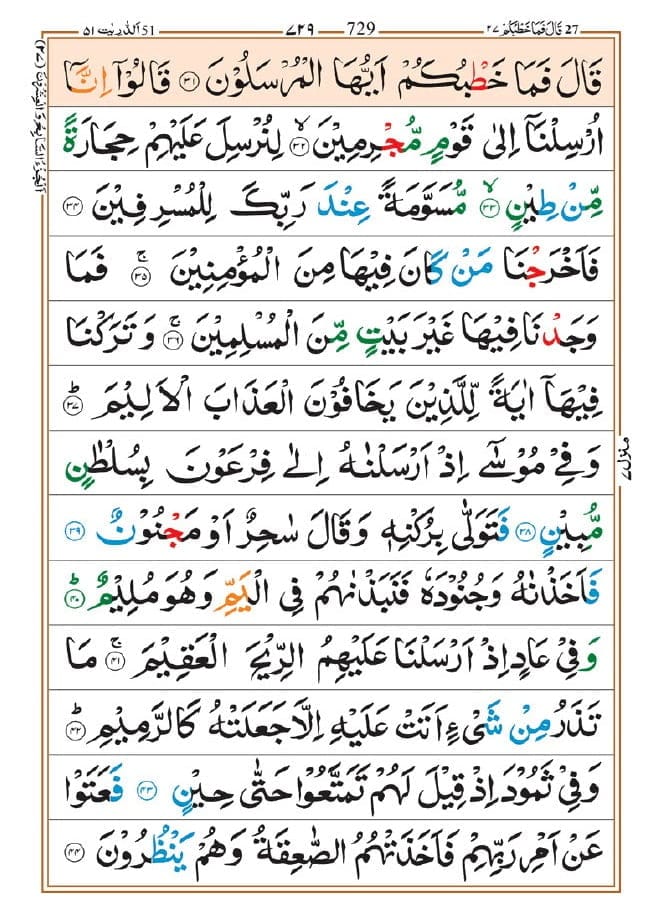 الذّٰریٰت ٥١ 51 ٧٢٩ 729 27 قَالَ فَمَا خَطْبُكُمْ ٢٧
قَالَ فَمَا خَطْبُكُمْ اَيُّهَا الْمُرْسَلُوْنَ ۝٣١ قَالُوْۤا اِنَّاۤ
اُرْسِلْنَاۤ اِلٰى قَوْمٍ مُّجْرِمِيْنَ ۝٣٢ۙ لِنُرْسِلَ عَلَيْهِمْ حِجَارَةً
مِّنْ طِيْنٍ ۝٣٣ۙ مُّسَوَّمَةً عِنْدَ رَبِّكَ لِلْمُسْرِفِيْنَ ۝٣٤
فَاَخْرَجْنَا مَنْ كَانَ فِيْهَا مِنَ الْمُؤْمِنِيْنَ ۝٣٥ۚ فَمَا
وَجَدْنَا فِيْهَا غَيْرَ بَيْتٍ مِّنَ الْمُسْلِمِيْنَ ۝٣٦ۚ وَ تَرَكْنَا
فِيْهَاۤ اٰيَةً لِّلَّذِيْنَ يَخَافُوْنَ الْعَذَابَ الْاَلِيْمَ ۝٣٧ؕ
وَ فِيْ مُوْسٰۤى اِذْ اَرْسَلْنٰهُ اِلٰى فِرْعَوْنَ بِسُلْطٰنٍ
مُّبِيْنٍ ۝٣٨ فَتَوَلّٰى بِرُكْنِهٖ وَ قَالَ سٰحِرٌ اَوْ مَجْنُوْنٌ ۝٣٩
فَاَخَذْنٰهُ وَ جُنُوْدَهٗ فَنَبَذْنٰهُمْ فِي الْيَمِّ وَ هُوَ مُلِيْمٌ ۝٤٠ؕ
وَ فِيْ عَادٍ اِذْ اَرْسَلْنَا عَلَيْهِمُ الرِّيْحَ الْعَقِيْمَ ۝٤١ۚ مَا
تَذَرُ مِنْ شَيْءٍ اَتَتْ عَلَيْهِ اِلَّا جَعَلَتْهُ كَالرَّمِيْمِ ۝٤٢ؕ
وَ فِيْ ثَمُوْدَ اِذْ قِيْلَ لَهُمْ تَمَتَّعُوْا حَتّٰى حِيْنٍ ۝٤٣ فَعَتَوْا
عَنْ اَمْرِ رَبِّهِمْ فَاَخَذَتْهُمُ الصّٰعِقَةُ وَ هُمْ يَنْظُرُوْنَ ۝٤٤
اَلْجُزْءُ السَّابِعُ وَ الْعِشْرُوْنَ (٢٧)
منزل ٧